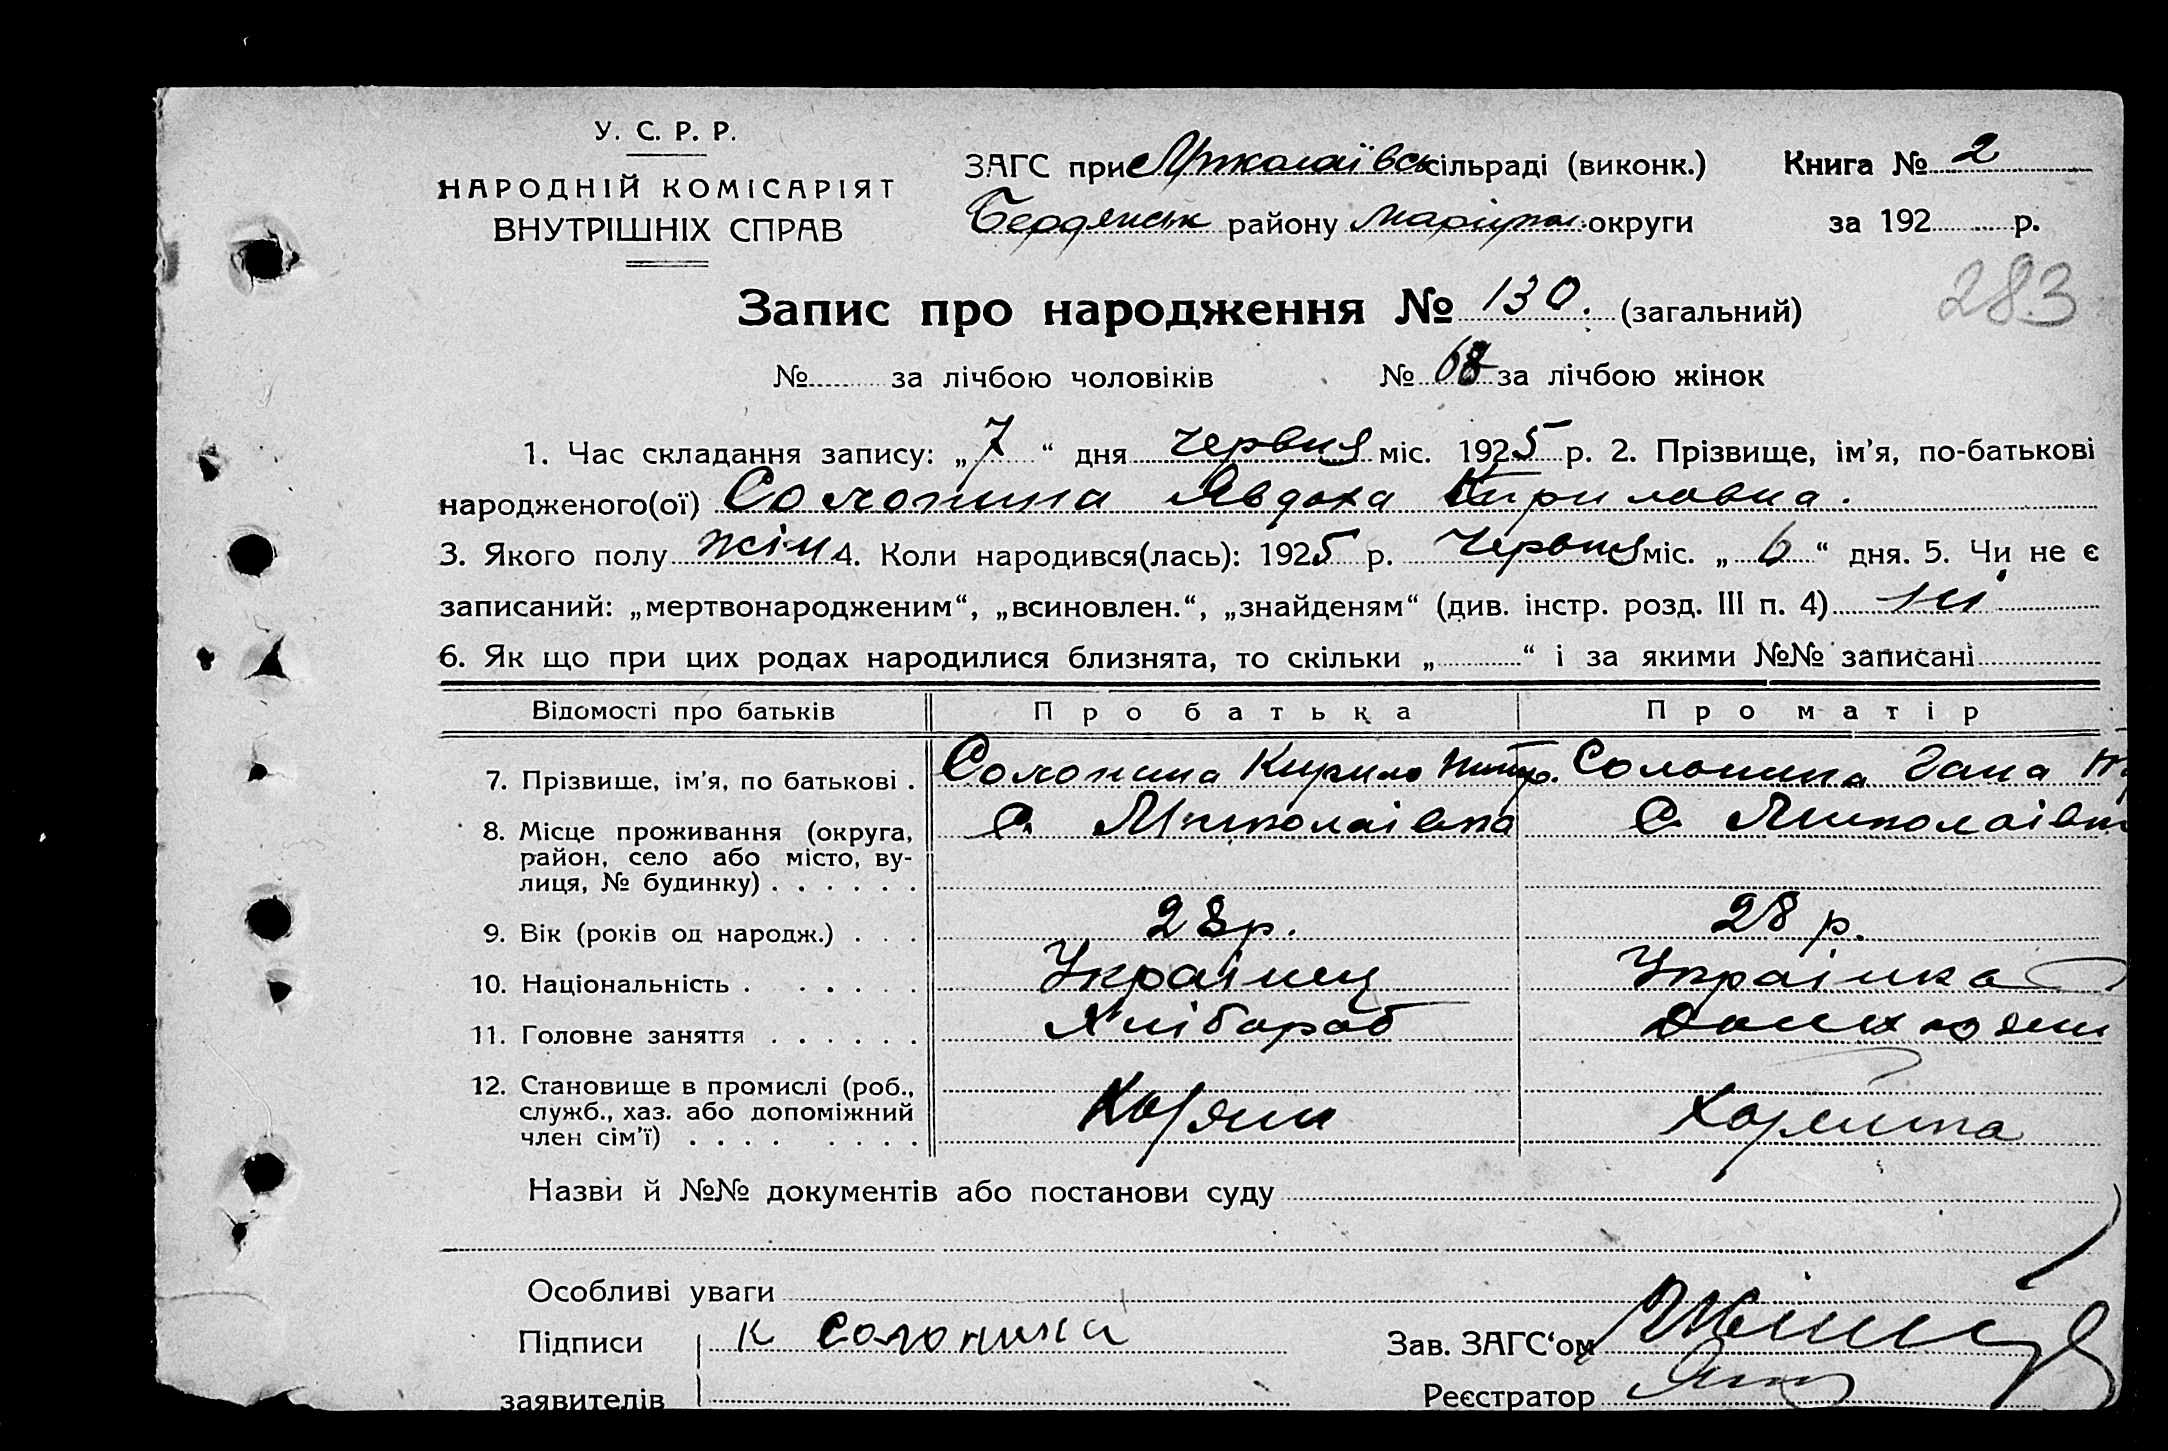 У. С. Р. Р.
НАРОДНІЙ КОМІСАРІЯТ
ВНУТРІШНІХ СПРАВ
ЗАГС при Миколаївськ сільраді (виконк.) Книга № 2
Бердянськ району Маріуп. округи за 192 р.
Запис про народження № 130. (загальний)
283
№ за лічбою чоловіків № 68 за лічбою жінок
1. Час складання запису: „7“ дня червня міс. 1925 р. 2. Прізвище, ім’я, по-батькові
народженого(ої) Солонина Явдоха Кириловна.
3. Якого полу жін 4. Коли народився(лась): 1925 р. Червня міс. „6“ дня. 5. Чи не є
записаний: „мертвонародженим“, „всиновлен.“, „знайденям“ (див. інстр. розд. III п. 4) ні
6. Як що при цих родах народилися близнята, то скільки „ “ і за якими №№ записані
Відомості про батьків Про батька Про матір
7. Прізвище, ім’я, по батькові . Солонина Кирило Солонина Гана
8. Місце проживання (округа, С. Миколаівка С. Миколаівк
район, село або місто, ву-
лиця, № будинку) . . . . . .
9. Вік (років од народж.) . . . 28р. 28 р.
10. Національність . . . . . . Українец Українка
11. Головне заняття . . . . . . Хлібороб
12. Становище в промислі (роб.,
служб., хаз. або допоміжний
член сім’ї) . . . . . . . .
Назви й №№ документів або постанови суду
Особливі уваги
Підписи К Солонина Зав. ЗАГС‘ом
заявителів Реєстратор